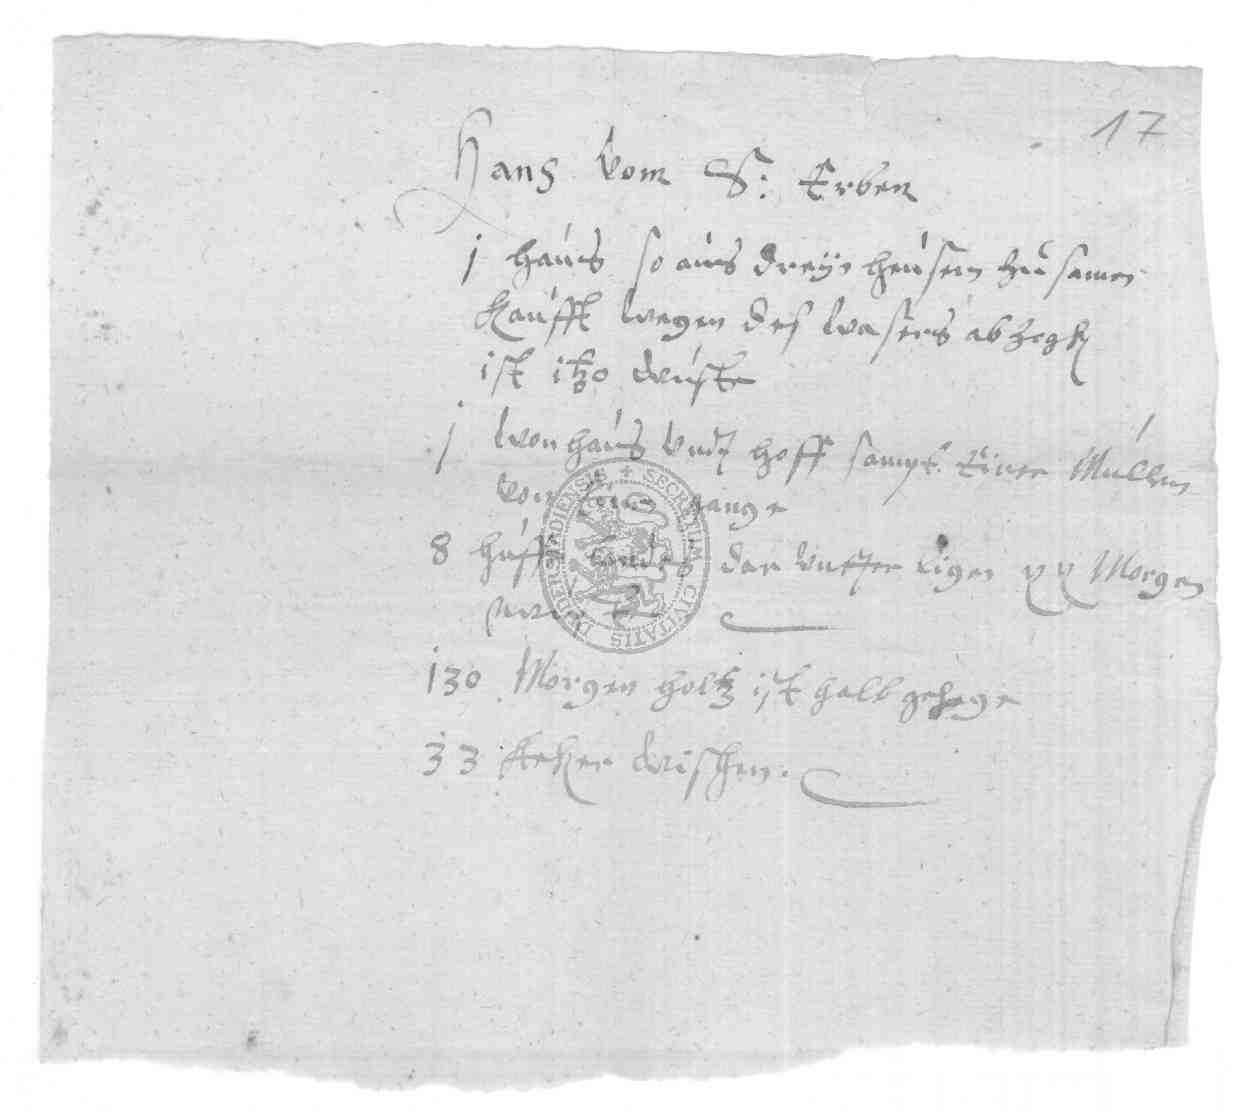 17
Hans vom S: Erben
j haus so aus dreyen heusern zusamen
kaufft wegen des wasers abzogk
ist itzo wuste
j wonhaus vndt hoff sampt einer Mullen
von gange
8 huffe landes dar vntter ligen xx Morgen
130 Morgen holtz ist halb gehege
33 Acker wischen.
SECRETUM CIVITATIS DUDERSTADIENSIS